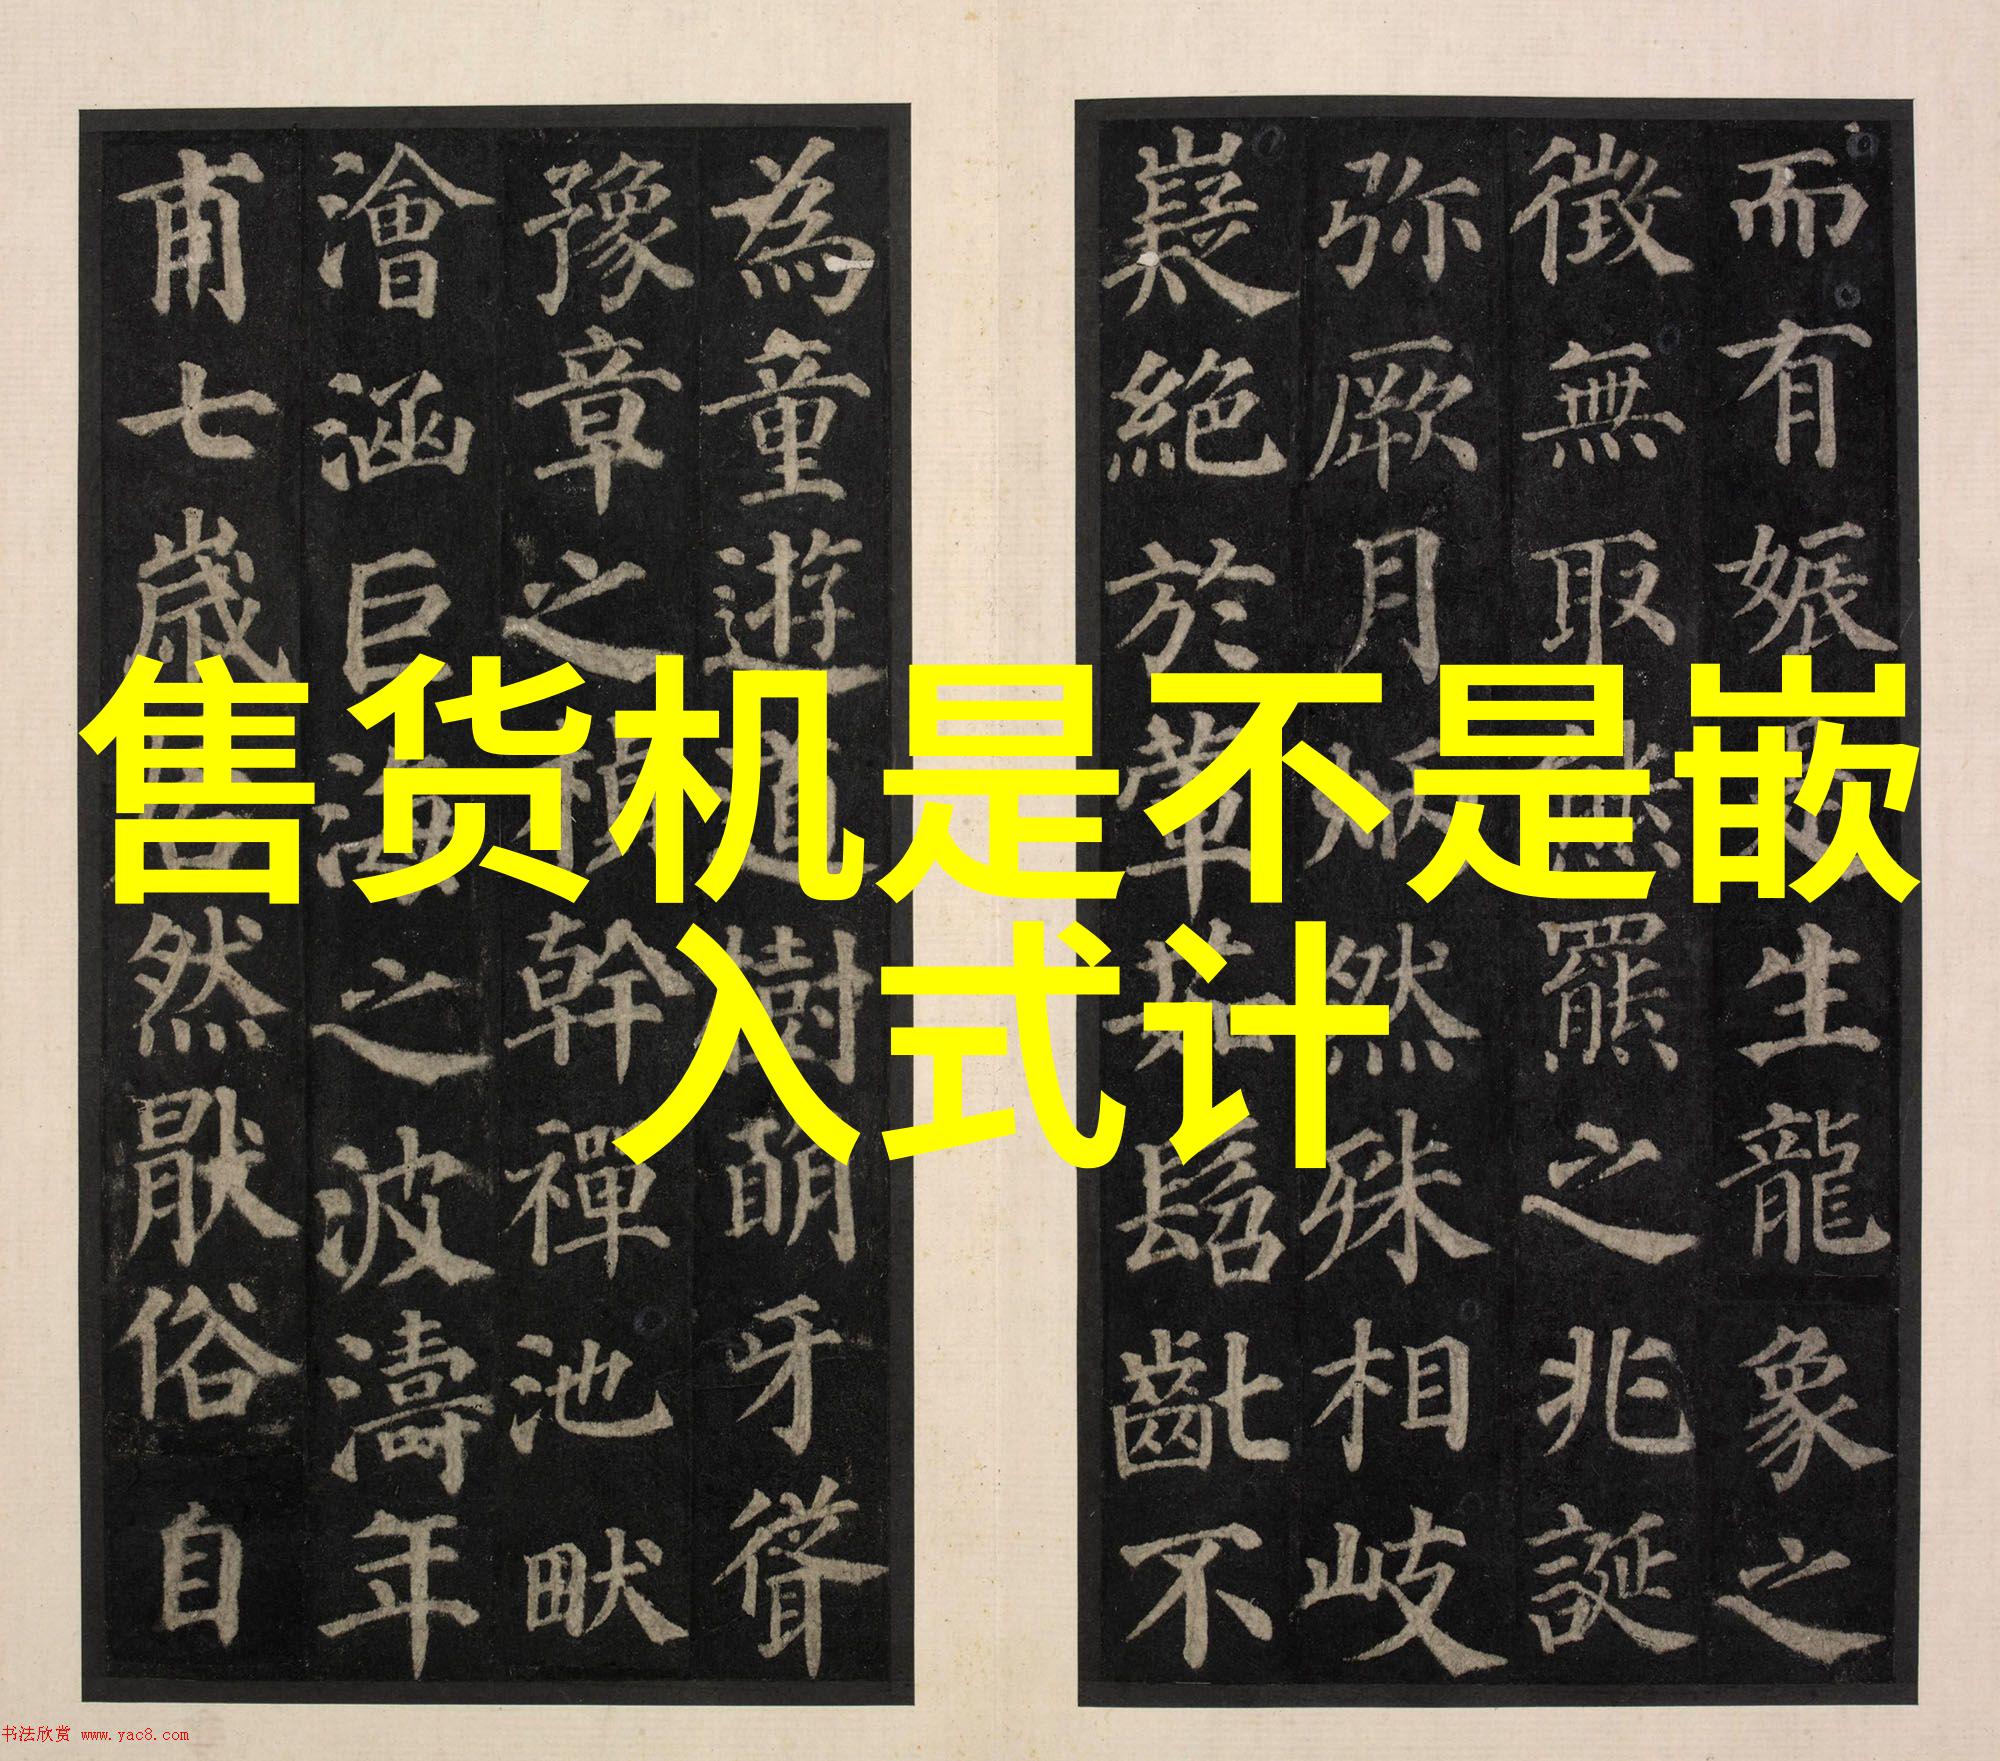 而有娠因生龍象之
徵無取熊羆之兆誕
弥厥月炳然殊相岐
嶷絕於葷茹髫齔不
為童遊道樹萌牙聳
豫章之楨幹禪池畎
澮涵巨海之波濤年
甫七歲居然猒俗自
售货机是不是嵌
入式计
书法欣赏 www.yac8.com